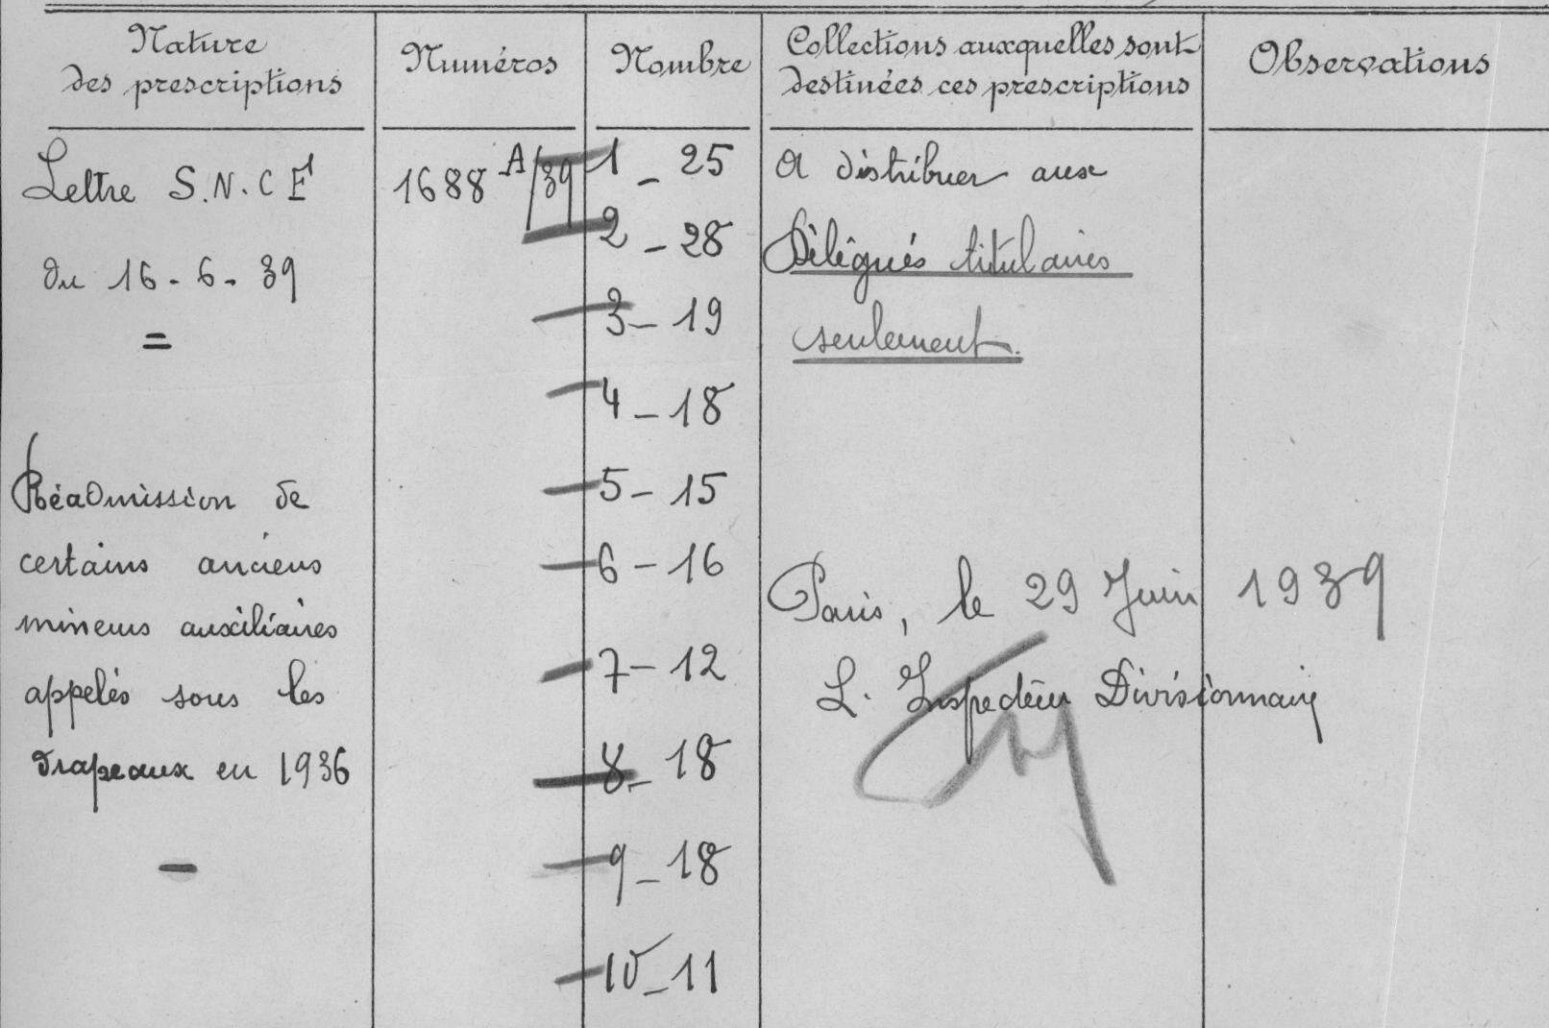 Nature
des prescriptions
Numéros
Nombre
Collections auxquelles sont
destinées ces prescriptions
Observations
Lettre S.N.C.F
du 16-6-39
=
Réadmission de
certains anciens
mineurs auxiliaires
appelés sous les
drapeaux en 1936
1688 A/39
1 - 25
2 - 28
3 - 19
4 - 18
5 - 15
6 - 16
7 - 12
8 - 18
9 - 18
10 - 11
A distribuer aux
Délégués titulaires
seulement.
Paris, le 29 Juin 1939
L. Inspecteur Divisionnaire